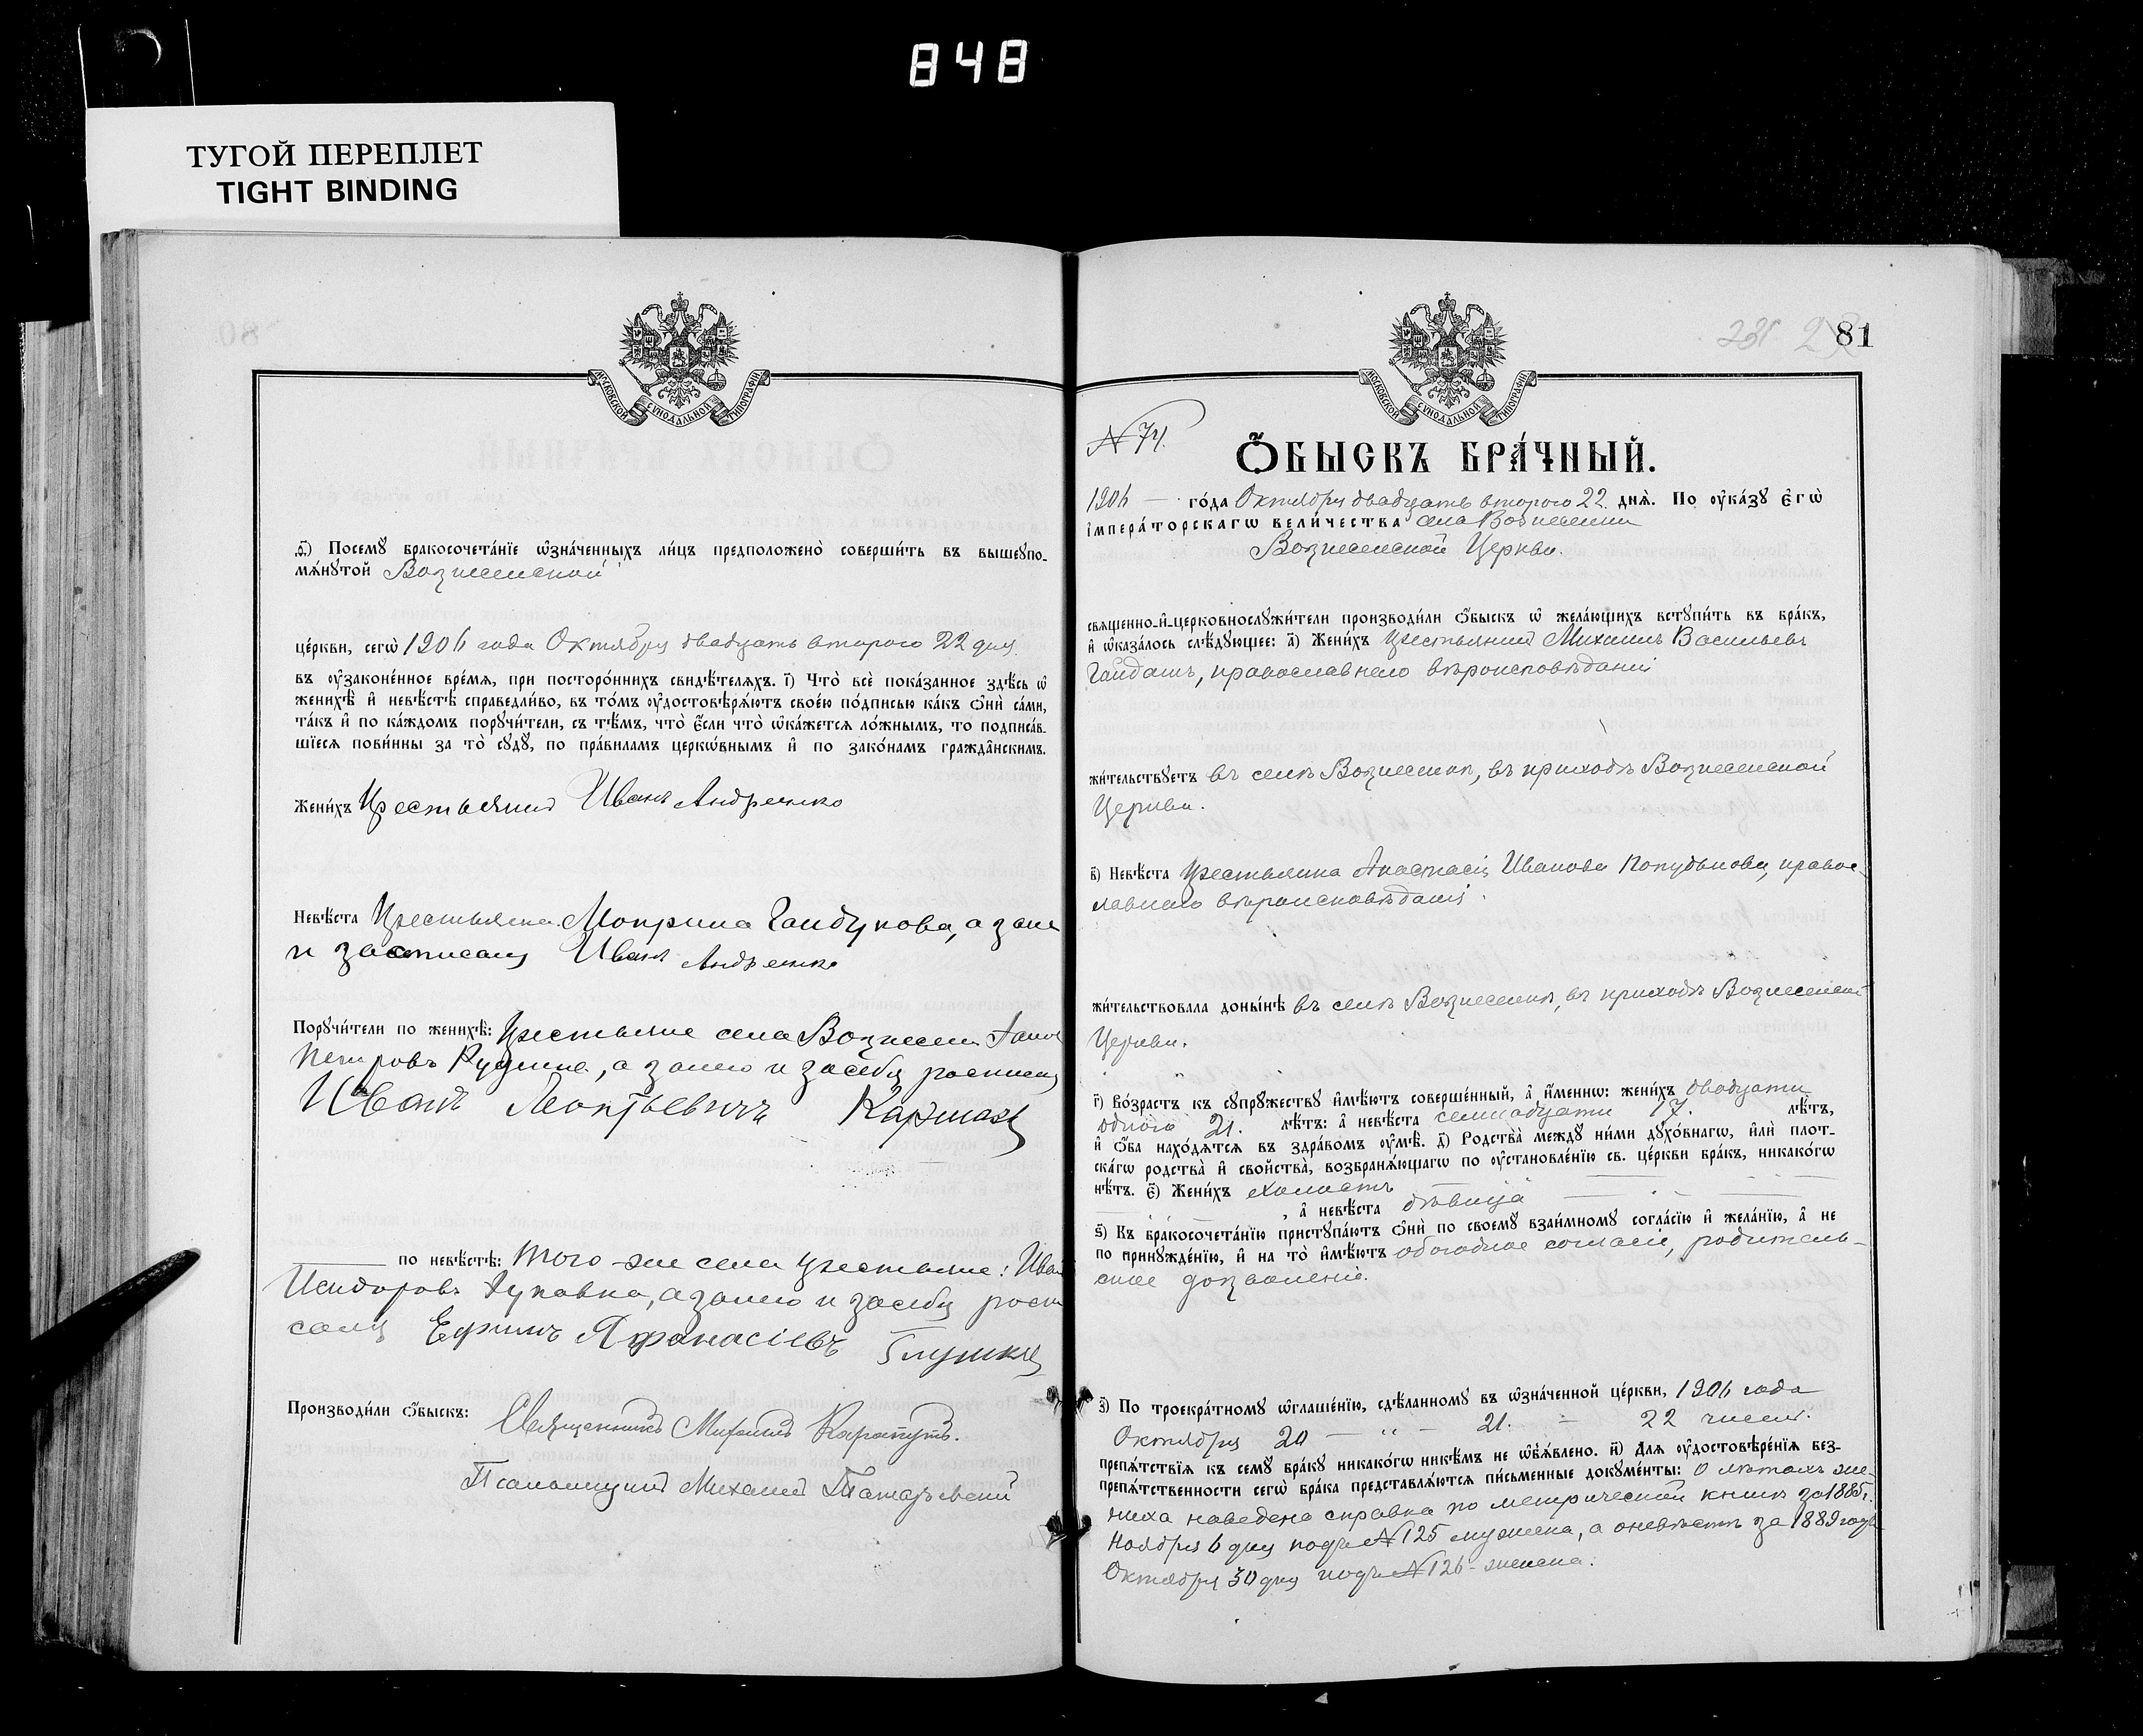 848
ТУГОЙ ПЕРЕПЛЕТ
TIGHT BINDING
МОСКОВСКОЙ СѴНОДАЛЬНОЙ ТИПОГРАФІИ
Посемꙋ бракосочета́нїе ѡ҆зна́ченныхъ ли́цъ предположено̀ соверши́ть въ вышеꙋпо-
мѧ́нꙋтой Вознесенской
це́ркви, сегѡ̀ 1906 года Октября двадцать второго 22 дня
въ ᲂу҆зако́ненное вре́мѧ, при посторо́ннихъ свидѣ́телѧхъ. і҃) Что̀ всѐ пока́занное здѣ́сь ѡ҆
женихѣ̀ и҆ невѣ́стѣ справедли́во, въ то́мъ ᲂу҆достовѣрѧ́ютъ свое́ю по́дписью ка́къ ѻ҆нѝ са́ми,
та́къ и҆ по ка́ждомъ порꙋчи́тели, съ тѣ́мъ, что̀ є҆́сли что̀ ѡ҆ка́жетсѧ ло́жнымъ, то подписа́в-
шїесѧ пови́нны за то̀ сꙋдꙋ̀, по пра́виламъ церкѡ́внымъ и҆ по зако́намъ гражда̑нскимъ.
Жени́хъ Крестьянинъ Иванъ Андреенко
Невѣ́ста Крестьянка Мокрина Гайдукова, а за нее
и росписался Иванъ Андреенко
Порꙋчи́тели по женихѣ̀: Крестьяне села Вознесен
Петровъ Рудина, а за него и за себя росписался
Иванъ Леонтьевичъ
по невѣ́стѣ: того-же села крестьяне: Иван
Исидоровъ а за него и за себя роспи
сался Ефимъ Афанасіевъ Глушко
Производи́ли ѻ҆́быскъ: Священникъ Михаилъ
Псаломщикъ Михаилъ
81
МОСКОВСКОЙ СѴНОДАЛЬНОЙ ТИПОГРАФІИ
N 74.
Ѻ҆́БЫСКЪ БРА́ЧНЫЙ.
1906 го́да Октября двадцать второго 22 днѧ̀. По ᲂу҆ка́зꙋ є҆гѡ̀
і҆мпера́торскагѡ вели́чества села Вознесенки
Вознесенской Церкви.
свѧщенно-и҆-церковнослꙋжи́тели производи́ли ѻ҆́быскъ ѡ҆ жела́ющихъ встꙋпи́ть въ бра́къ,
и҆ ѡ҆каза́лось слѣ́дꙋющее: а҃) Жени́хъ Крестьянинъ Михаилъ Васильевъ
Гайдашъ, православнаго вѣроисповѣданія
жи́тельствꙋетъ въ селѣ Вознесенкѣ, въ приходѣ Вознесенской
Церкви.
в҃) Невѣ́ста Крестьянка Анастасія Иванова правос-
лавнаго вѣроисповѣданія.
жи́тельствовала доны́нѣ въ селѣ Вознесенкѣ, въ приходѣ Вознесенской
Церкви.
г҃) Во́зрастъ къ сꙋпрꙋ́жествꙋ и҆мѣ́ютъ соверше́нный, а҆ и҆́менно: жени́хъ двадцати
одного 21. лѣ́тъ: а҆ невѣ́ста семнадцати 17. лѣ́тъ,
и҆ ѻ҆́ба нахо́дѧтсѧ въ здра́вомъ ᲂу҆мѣ̀. д҃) Родства̀ междꙋ̀ ни́ми дꙋхо́внагѡ, и҆лѝ плот-
ска́гѡ родства̀ и҆ сво́йства̀, возбранѧ́ющагѡ по ᲂу҆становле́нїю св. це́ркви бра́къ, никако́гѡ
нѣ́тъ. є҃) Жени́хъ холостъ
, а҆ невѣ́ста дѣвица
ѕ҃) Къ бракосочета́нїю пристꙋпа́ютъ ѻ҆нѝ по своемꙋ̀ взаи́мномꙋ согла́сїю и҆ жела́нїю, а҆ не
по принꙋжде́нїю, и҆ на то̀ и҆мѣ́ютъ обоюдное согласіе, родитель-
ское дозволеніе.
з҃) По троекра́тномꙋ ѡ҆глаше́нїю, сдѣ́ланномꙋ въ ѡ҆зна́ченной це́ркви, 1906 года
Октября 20 — „ — 21. — 22 чиселъ.
препѧ́тствїѧ къ семꙋ̀ бра́кꙋ никако́гѡ никѣ́мъ не ѡ҆б̾ѧ́влено. и҃) Длѧ ᲂу҆достовѣре́нїѧ без-
препѧ́тственности сегѡ̀ бра́ка представлѧ́ютсѧ пи́сьменные докꙋме́нты: О лѣтахъ же-
ниха наведена справка по метрической книгѣ за 1885 г.
Ноября 6 дня подъ N 125 мужска, а о невѣстѣ за 1889 годъ
Октября 30 дня подъ N 126 женска.